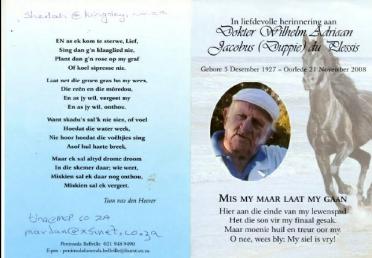 Sheelah @ kingsley.co.za
EN as ek kom te sterwe, Lief,
Sing dan g'n klaaglied nie,
Plant dan g'n rose op my graf
Of koel sipresse nie.
Laat net die groen gras bo my wees,
Die reën en die môredou,
En as jy wil, vergeet my
En as jy wil, onthou.
Want skadu's sal 'k nie sien, of voel
Hoedat die water week,
Nie hoor hoedat die voëltjies sing
Asof hul harte breek.
Maar ek sal altyd drome droom
In die skemer daar; wie weet,
Miskien sal ek daar nog onthou,
Miskien sal ek vergeet.
Toon van den Heever
co.za
Peninsula Bellville 021 948 9490
In liefdevolle herinnering aan
Dokter Wilhelm Adriaan
Jacobus (Duppie) du Plessis
Gebore 5 Desember 1927 - Oorlede 21 November 2008
MIS MY MAAR LAAT MY GAAN
Hier aan die einde van my lewenspad
Het die son vir my finaal gesak.
Maar moenie huil en treur oor my.
O nee, wees bly: My siel is vry!